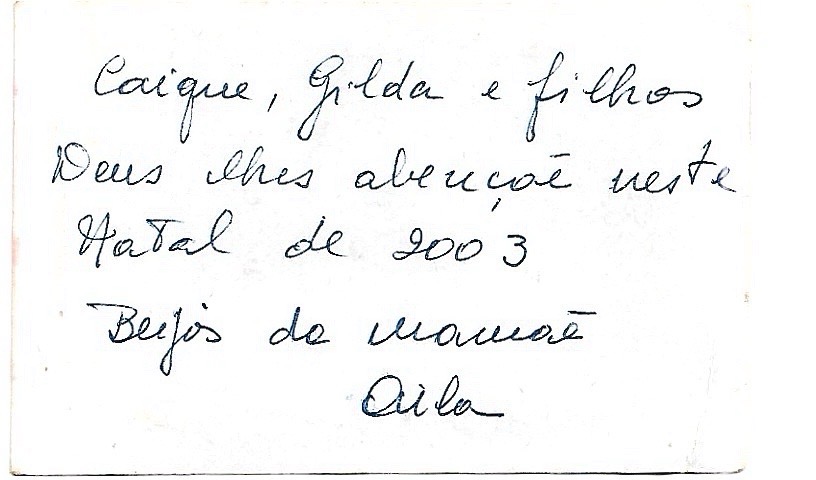 Caique, Gilda e filhos
Deus lhes abençoê neste
Natal de 2003
Beijos da mamãe
Aila